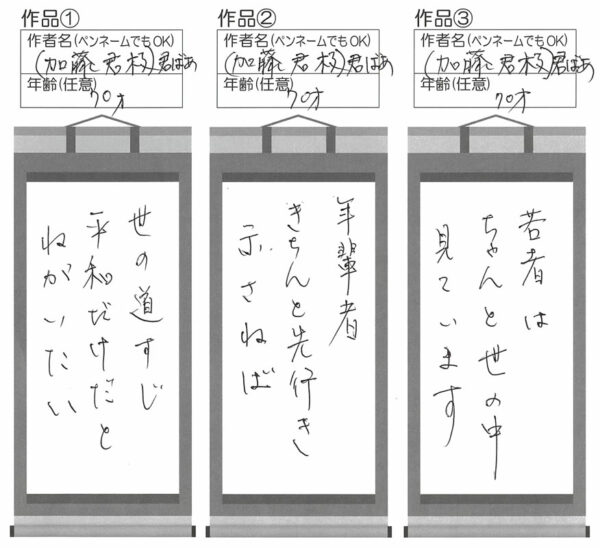 作品①
作者名(ペンネームでもOK)
(加藤君枝)君ばあ
年齢(任意)
70才
世の道すじ
平和だけだと
ねがいたい
作品②
作者名(ペンネームでもOK)
(加藤君枝)君ばあ
年齢(任意)
70才
年輩者
きちんと先行き
示さねば
作品③
作者名(ペンネームでもOK)
(加藤君枝)君ばあ
年齢(任意)
70才
若者は
ちゃんと世の中
見ています